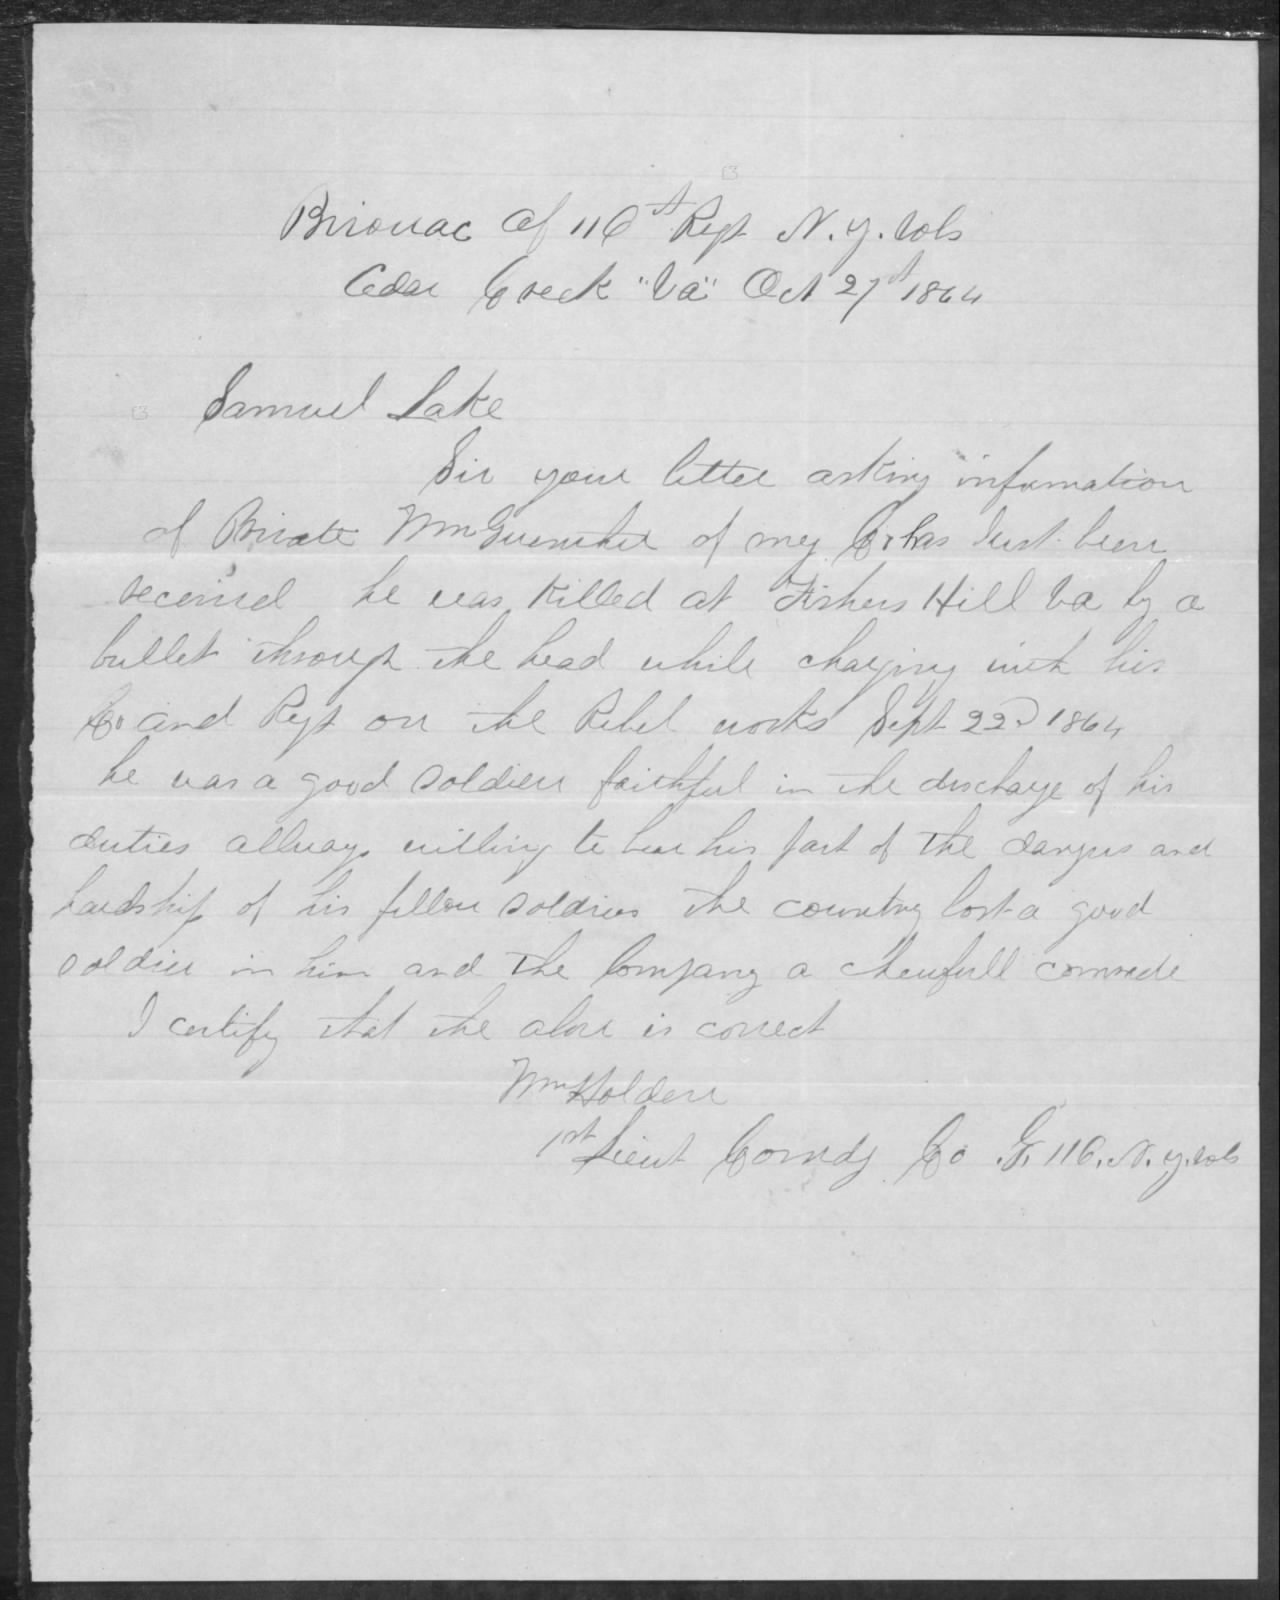 Bivouac of 116th Regt N.Y. Vols
Cedar Creek "Va" Oct 27th 1864
Samuel Lake
Sir your letter asking information
of Private Wm of my Co has Just been
received he was Killed at Fishers Hill Va by a
bullet through the head while charging with his
Co and Regt on the Rebel works Sept 22d 1864
he was a good soldier faithful in the discharge of his
duties allways willing to bear his part of the dangers and
hardship of his fellow soldiers the country lost a good
soldier in him and the Company a cheerfull comrade
I certify that the above is correct
Wm Holden
1st Lieut Comdg Co G. 116. N.Y. Vols